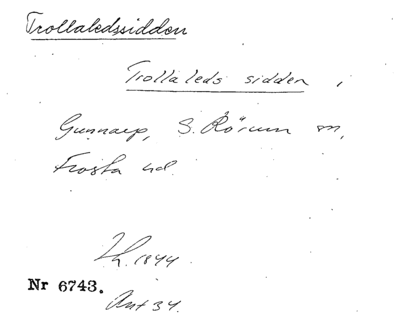 Trollaledssidden
Trollaleds sidden,
Gunnarp, S. Rörum sn,
Frosta hd
1844.
Nr 6743.
Ant 34.